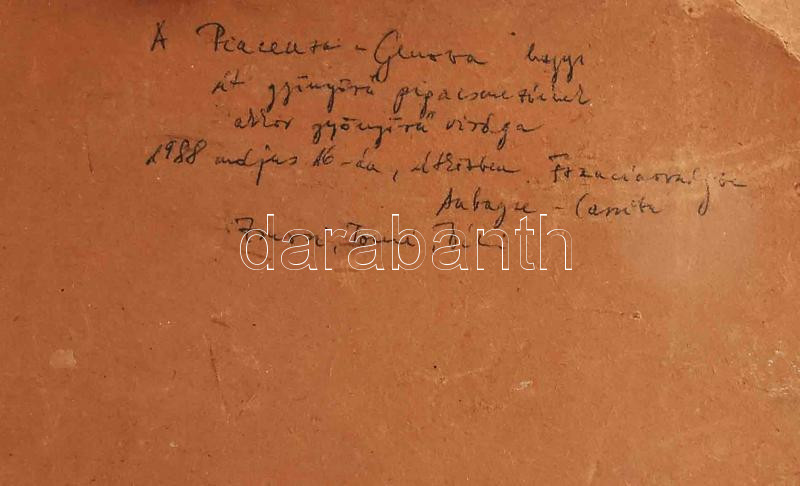 A Piacenza - Genova hegyi
út gyönyörű pipacsmezőinek
akkor gyönyörű virága
1988 május 16-án, útközben Franciaországba
Aubagne - Cassis
darabanth